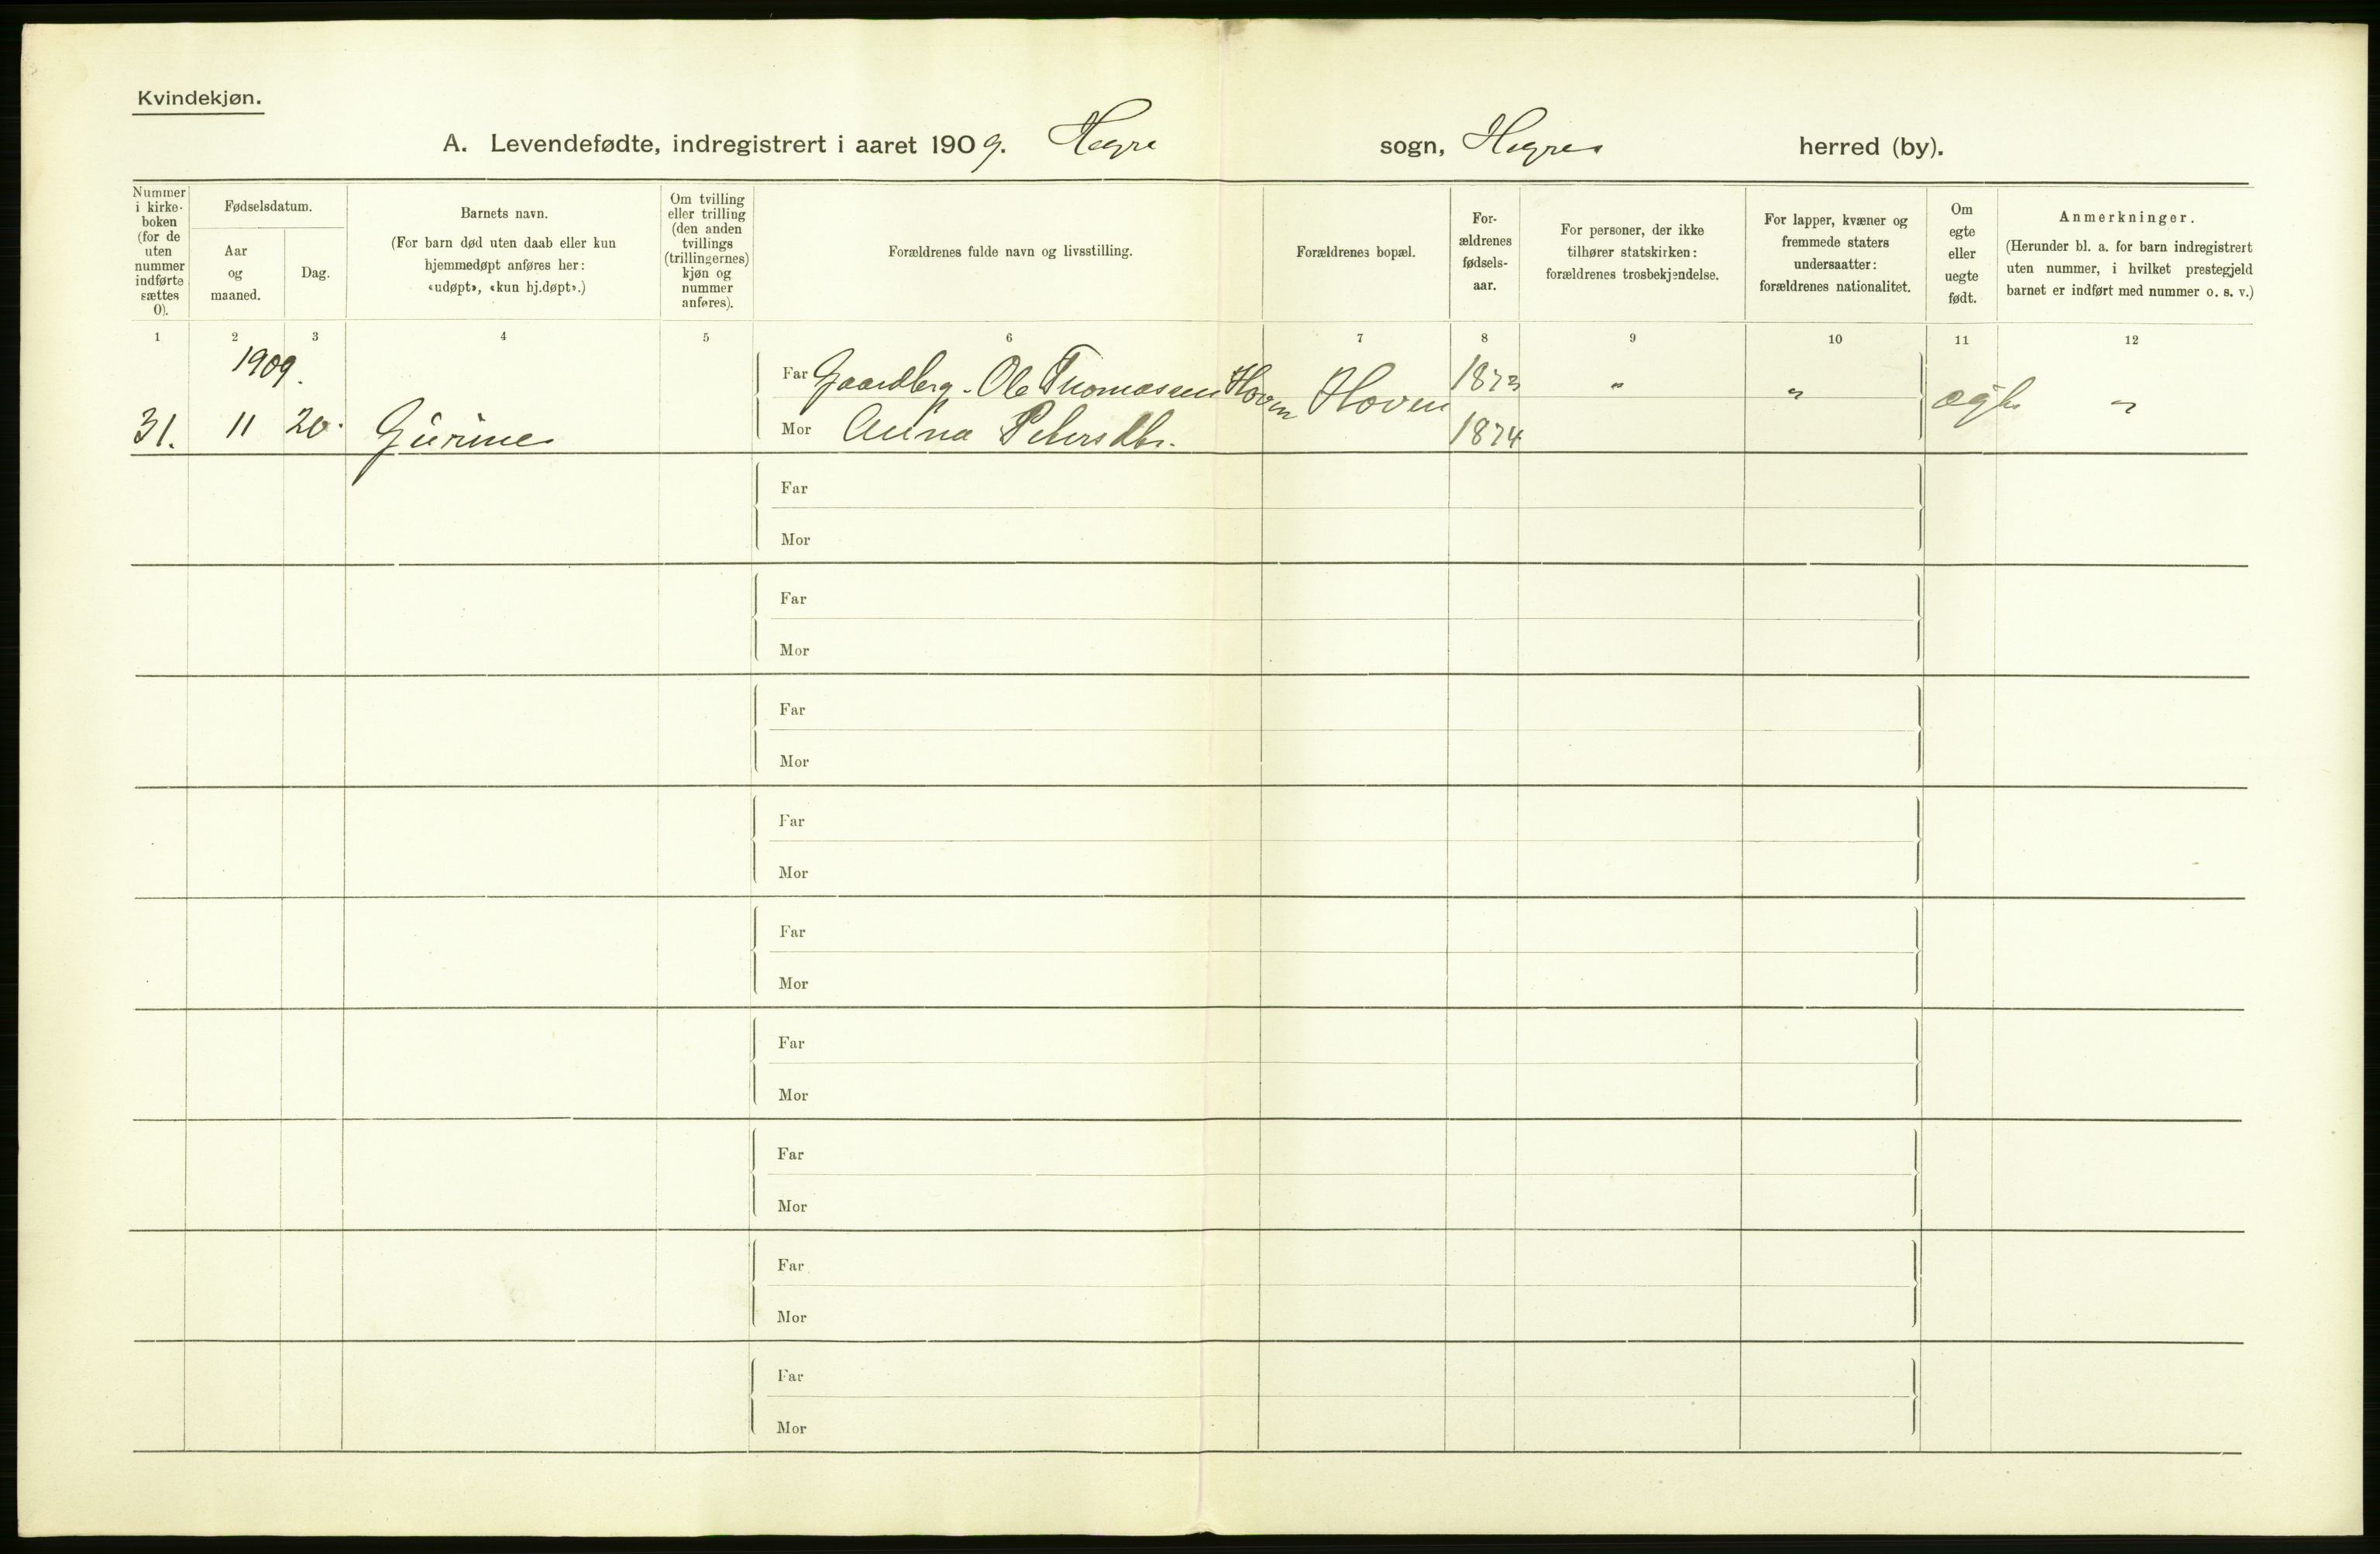 Kvindekjøn.
A. Levendefødte, indregistrert i aaret 1909. Hegre sogn, Hegre herred (by).
Nummer
i kirke-
boken
(for de
uten
nummer
indførte
sættes
0).
Fødselsdatum.
Aar
og
maaned.
Dag.
Barnets navn.
(For barn død uten daab eller kun
hjemmedøpt anføres her:
«udøpt», «kun hj.døpt».)
Om tvilling
eller trilling
(den anden
tvillings
(trillingernes)
kjøn og
nummer
anføres).
Forældrenes fulde navn og livsstilling.
Forældrenes bopæl.
For-
ældrenes
fødsels-
aar.
For personer, der ikke
tilhører statskirken:
forældrenes trosbekjendelse.
For lapper, kvæner og
fremmede staters
undersaatter:
forældrenes nationalitet.
Om
egte
eller
uegte
født.
Anmerkninger.
(Herunder bl. a. for barn indregistrert
uten nummer, i hvilket prestegjeld
barnet er indført med nummer o. s. v.)
1 2 3 4 5 6 7 8 9 10 11 12
1909.
Far Gaardbrg. Ole Thomassen Hoven Hoven 1873 " " ægte "
31. 11 20. Gurine Mor Anna Petersdtr. 1874
Far
Mor
Far
Mor
Far
Mor
Far
Mor
Far
Mor
Far
Mor
Far
Mor
Far
Mor
Far
Mor